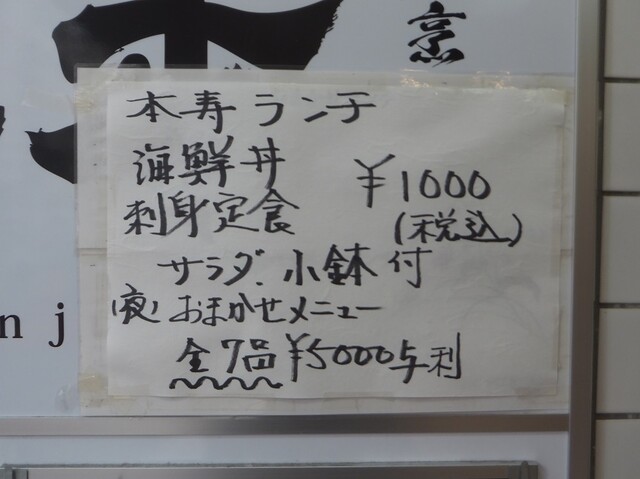 烹
本寿ランチ
海鮮丼
刺身定食
¥1000
(税込)
サラダ、小鉢付
(夜)おまかせメニュー
全7品¥5000与利
n j